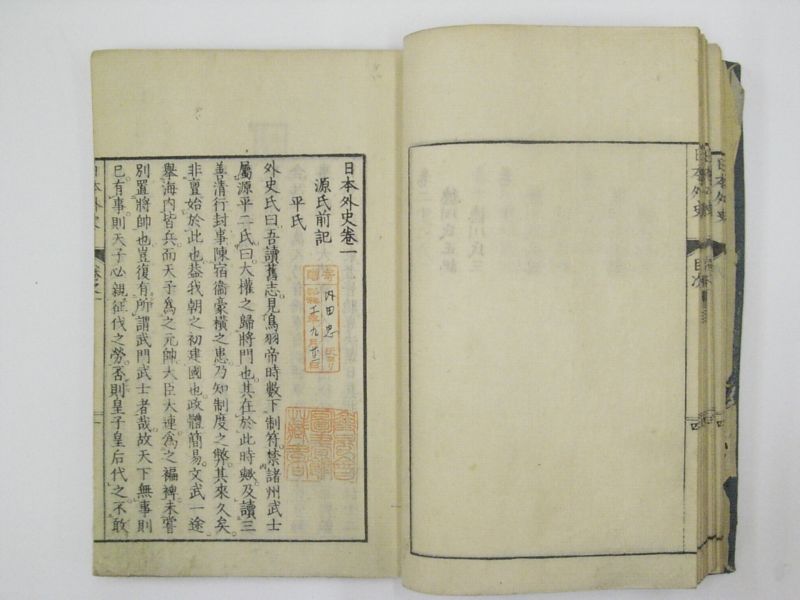 日本外史
目次
四
日本外史
四
日本外史卷一
源氏前記
平氏
外史氏曰吾讀舊志見鳥羽帝時數下制符禁諸州武士
屬源平二氏曰大權之歸將門也其在於此時歟及讀三
善清行封事陳宿衞豪橫之患乃知制度之弊其來久矣
非亶始於此也蓋我朝之初建國也政體簡易文武一途
舉海內皆兵而天子爲之元帥大臣大連爲之褊裨未嘗
別置將帥也豈復有所謂武門武士者哉故天下無事則
已有事則天子必親征伐之勞否則皇子皇后代之不敢
日本外史
卷之一
一
寄
內田忠
九月廿一日